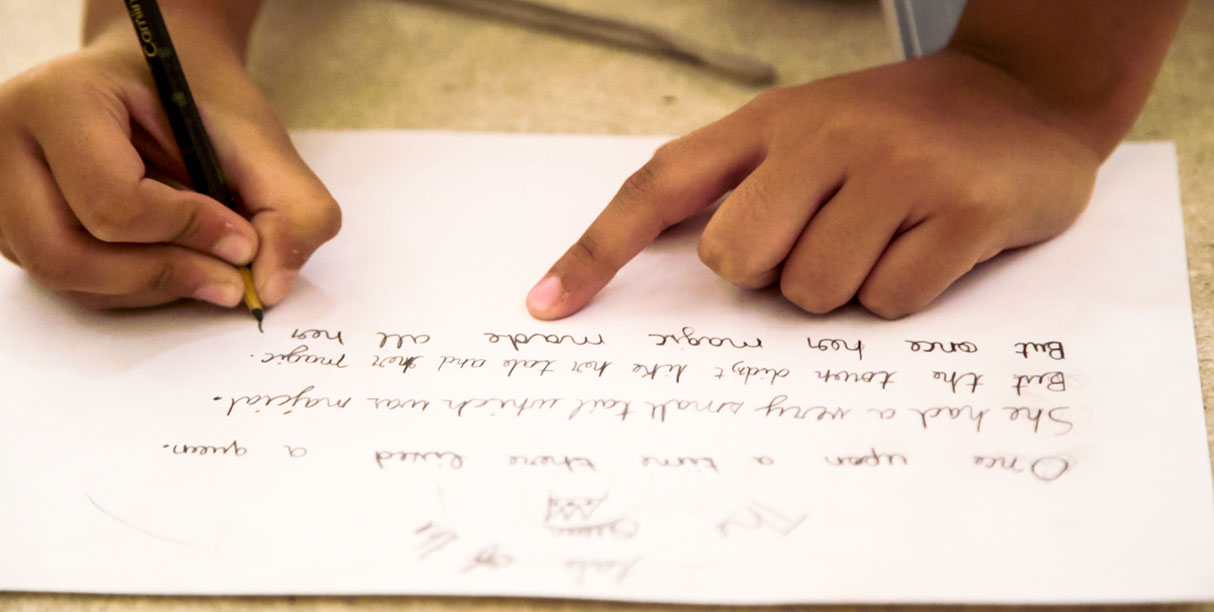 tale of
Once upon a time there lived a queen.
She had a very small tail which was majcial.
But the town didn't like her tale and her magic.
But once her magic made all her